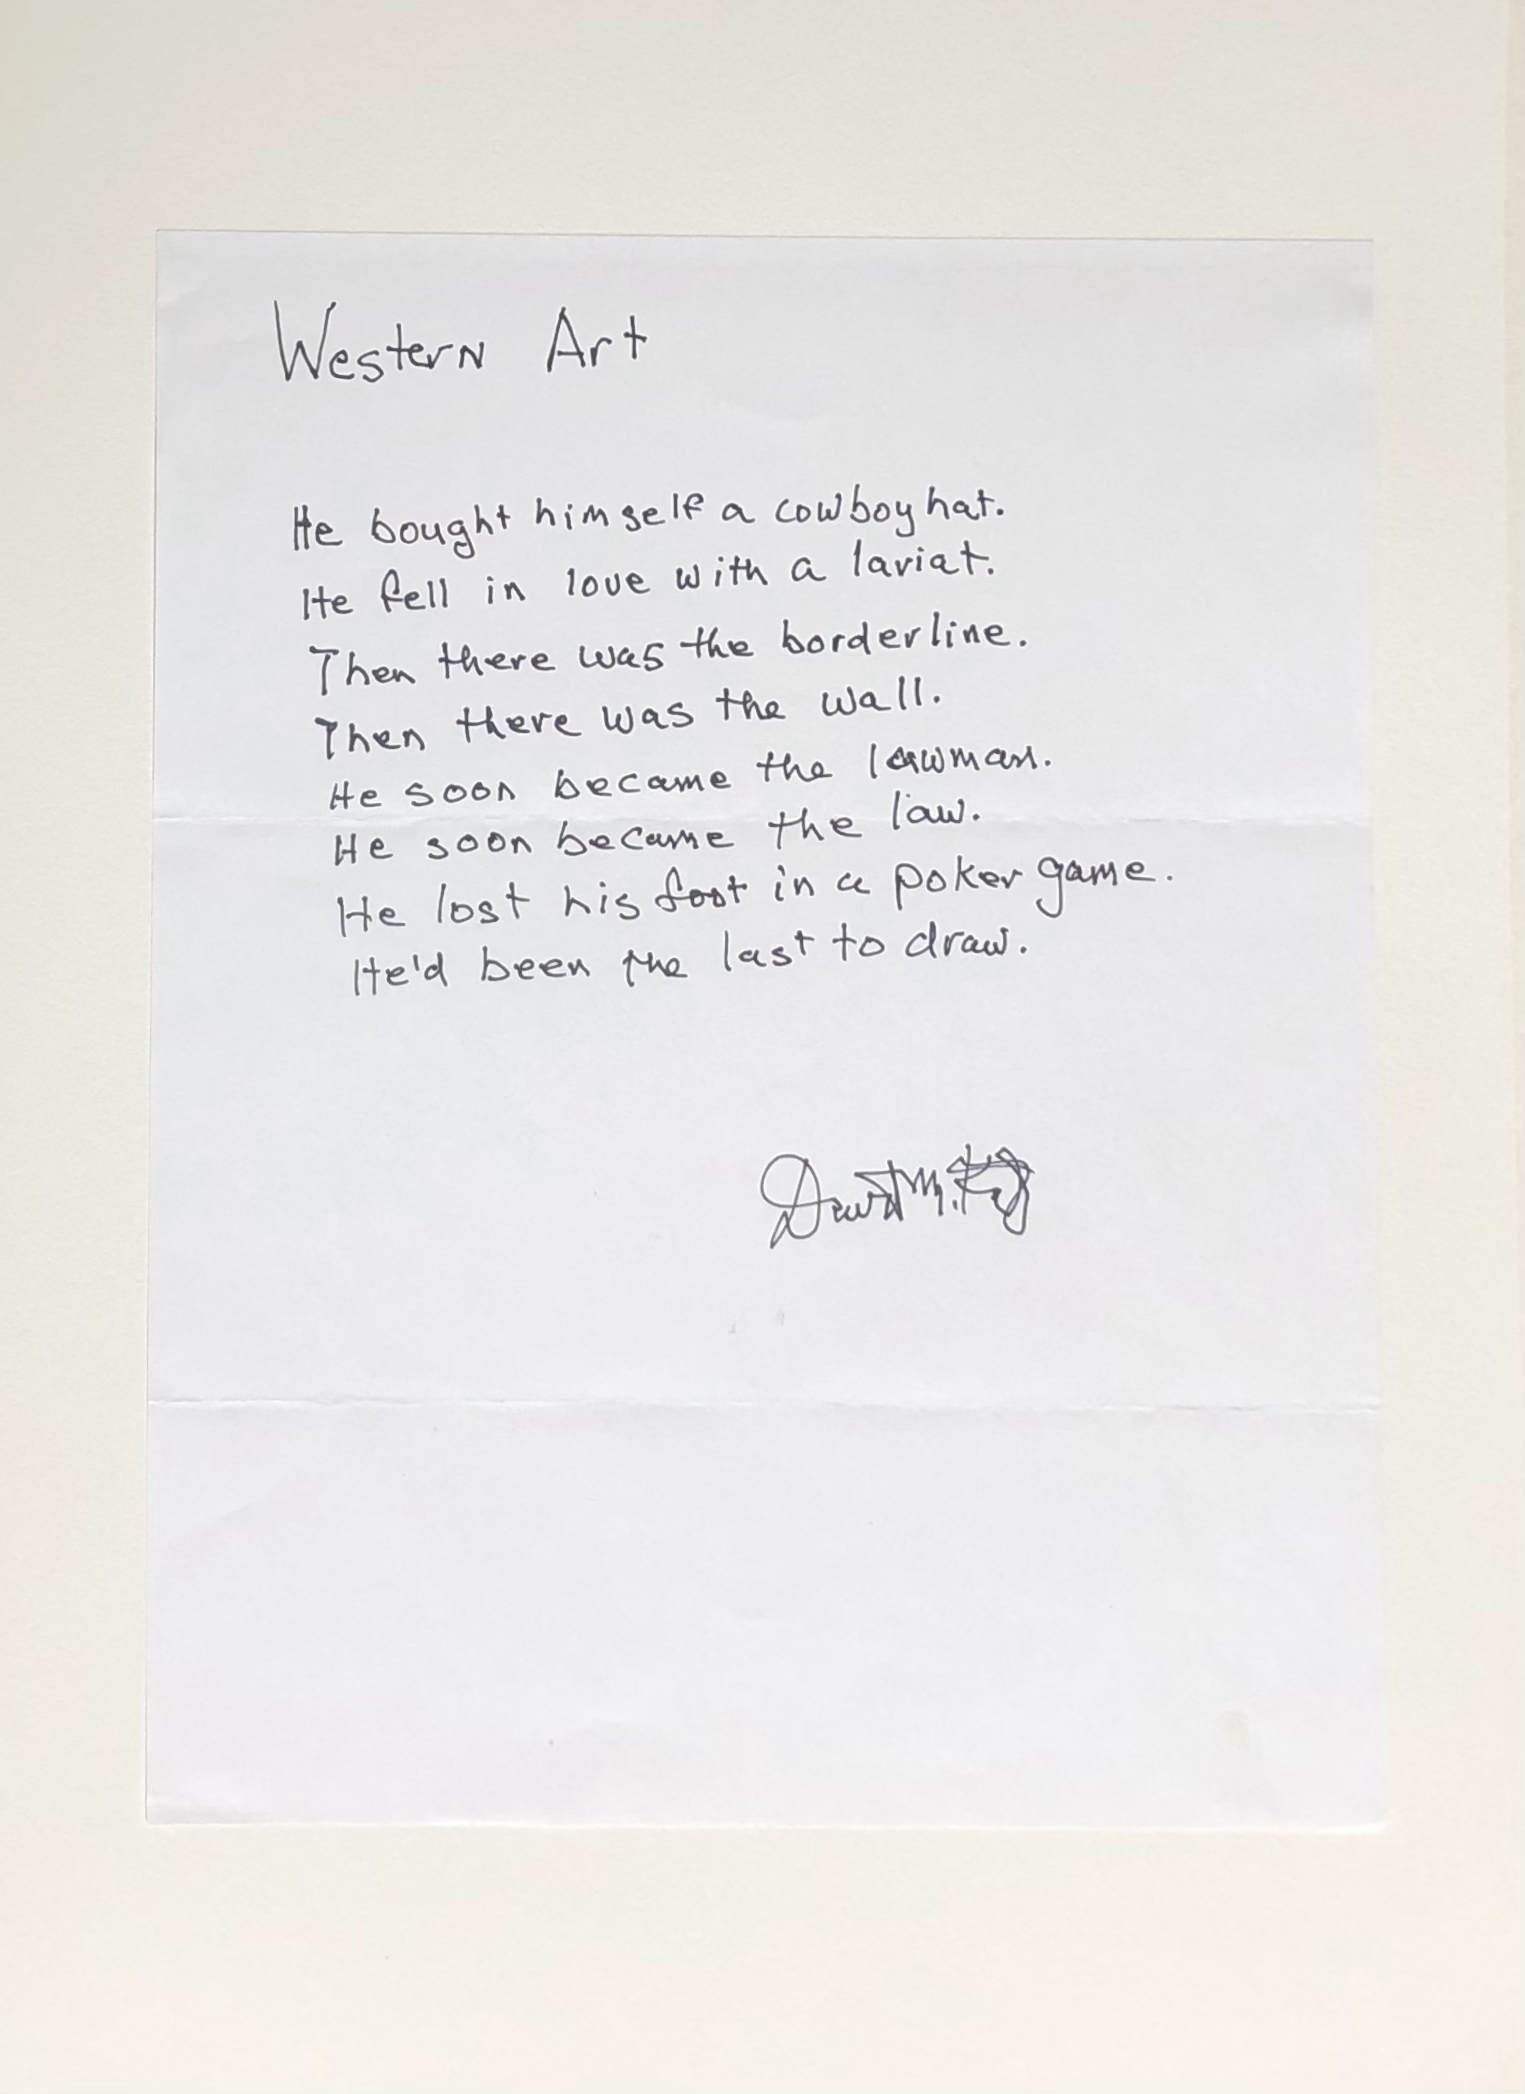 Western Art
He bought himself a cowboy hat.
He fell in love with a lariat.
Then there was the borderline.
Then there was the wall.
He soon became the lawman.
He soon became the law.
He lost his foot in a poker game.
He'd been the last to draw.
David M.